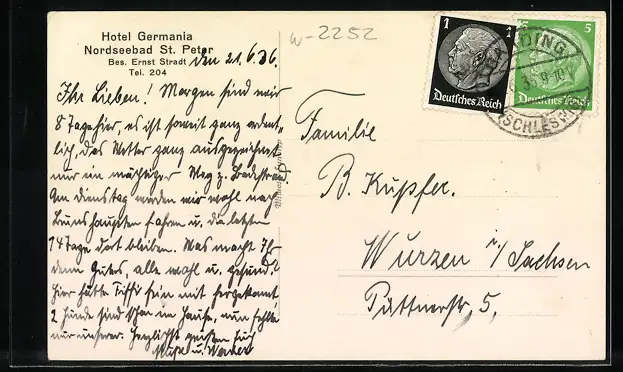 Hotel Germania
Nordseebad St. Peter
Bes. Ernst Stradt
Tel. 204
den 21.6.36.
w-2252
Ihr Lieben! Morgen sind wir
8 Tage hier, es ist soweit ganz ordent-
lich, das Wetter ganz ausgezeichnet
nur ein mächtiger Weg z. Badestrand.
Am Dienstag werden wir wohl nach
Brunshaupten fahren u. die letzten
14 Tage dort bleiben. Was macht Ihr
denn Gutes, alle wohl u. gesund?
Hier hätte Tiffi fein mit hergekonnt
2 Hunde sind schon im Hause, nun fehlte
nur unserer. Herzlichst grüßen Euch
u. Werner
Familie
B. Kupfer.
Wurzen i/Sachsen
Puttnerstr. 5.
1 1
Deutsches Reich
5 5
Deutsches Reich
GARDING
(SCHLESW.)